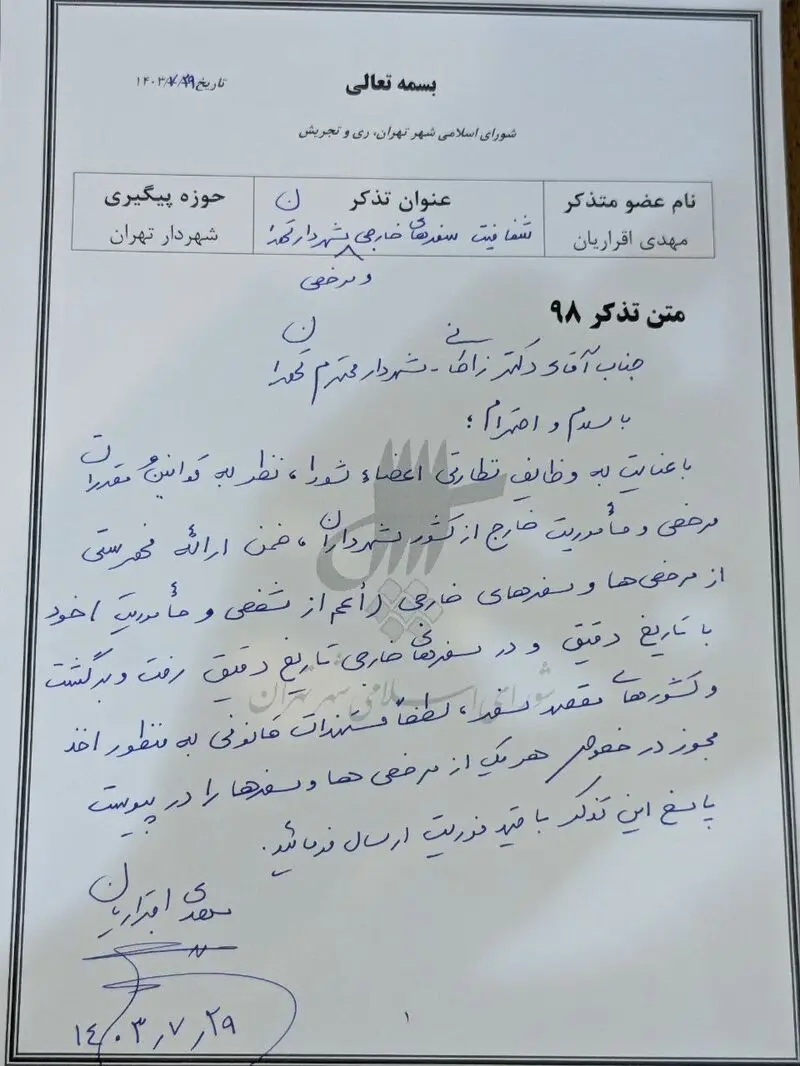 بسمه تعالی
تاریخ ۱۴۰۳/۷/۲۹
شورای اسلامی شهر تهران، ری و تجریش
نام عضو متذکر
عنوان تذکر
حوزه پیگیری
مهدی اقراریان
شفافیت سفرهای خارجی شهردار تهران
شهردار تهران
و مرخصی
متن تذکر ۹۸
جناب آقای دکتر زاکانی - شهردار محترم تهران
با سلام و احترام ؛
با عنایت به وظایف نظارتی اعضاء شورا، نظر به قوانین و مقررات
مرخصی و مأموریت خارج از کشور شهرداران، ضمن ارائه فهرستی
از مرخصی‌ها و سفرهای خارجی (أعم از شخصی و مأموریت) خود
با تاریخ دقیق و در سفرهای خارجی تاریخ دقیق رفت و برگشت
و کشورهای مقصد سفر، لطفاً مستندات قانونی به منظور اخذ
مجوز در خصوص هر یک از مرخصی ها و سفرها را در پیوست
پاسخ این تذکر با قید فوریت ارسال فرمائید.
مهدی اقراریان
۱۴۰۳٫۷٫۲۹
۱
شورای اسلامی شهر تهران